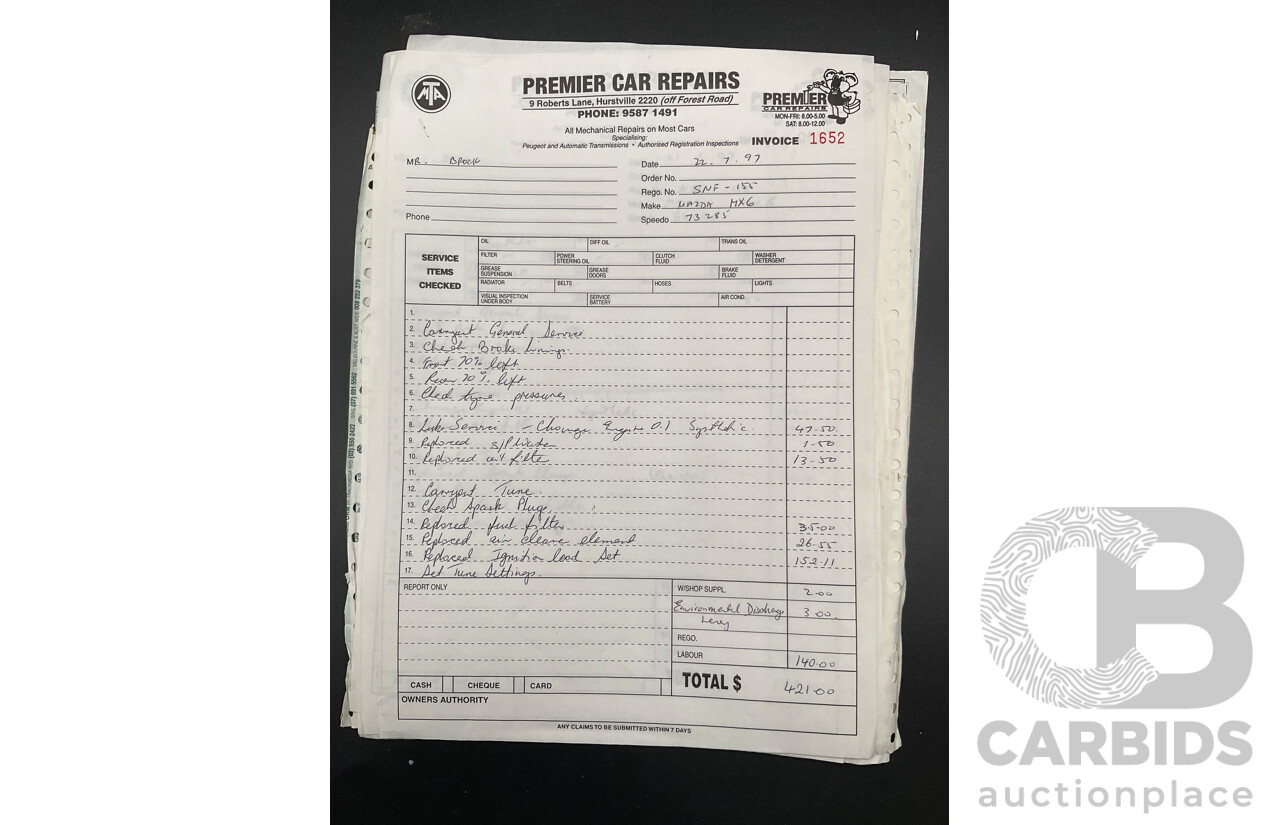 MTA
PREMIER CAR REPAIRS
9 Roberts Lane, Hurstville 2220 (off Forest Road)
PHONE: 9587 1491
PREMIER
CAR REPAIRS
MON-FRI: 8.00-5.00
SAT: 8.00-12.00
All Mechanical Repairs on Most Cars
Specialising:
Peugeot and Automatic Transmissions • Authorised Registration Inspections
INVOICE 1652
MR. BROCK
Date 22.7.97
Order No.
Rego. No. SNF-155
Make MAZDA MX6
Phone
Speedo 73285
SERVICE ITEMS CHECKED
OIL DIFF OIL TRANS OIL
FILTER POWER STEERING OIL CLUTCH FLUID WASHER DETERGENT
GREASE SUSPENSION GREASE DOORS BRAKE FLUID
RADIATOR BELTS HOSES LIGHTS
VISUAL INSPECTION UNDER BODY SERVICE BATTERY AIR COND.
1.
2. Carryout General Service
3. Check Brake Linings.
4. Front 70% left
5. Rear 70% left
6. Check tyre pressures.
7.
8. Lube Service - Change Engine Oil Synthetic. 47.50.
9. Replaced s/P Washer 1-50
10. Replaced oil filter 13-50
11.
12. Carryout Tune.
13. Check Spark Plugs.
14. Replaced fuel filter 35.00
15. Replaced air cleaner element 26-55
16. Replaced Ignition lead Set 152.11
17. Set Tune Settings.
REPORT ONLY
W/SHOP SUPPL. 2-00
Environmental Discharge Levy 3.00.
REGO.
LABOUR 140.00
TOTAL $ 421.00
CASH CHEQUE CARD
OWNERS AUTHORITY
ANY CLAIMS TO BE SUBMITTED WITHIN 7 DAYS
CB
CARBIDS
auctionplace